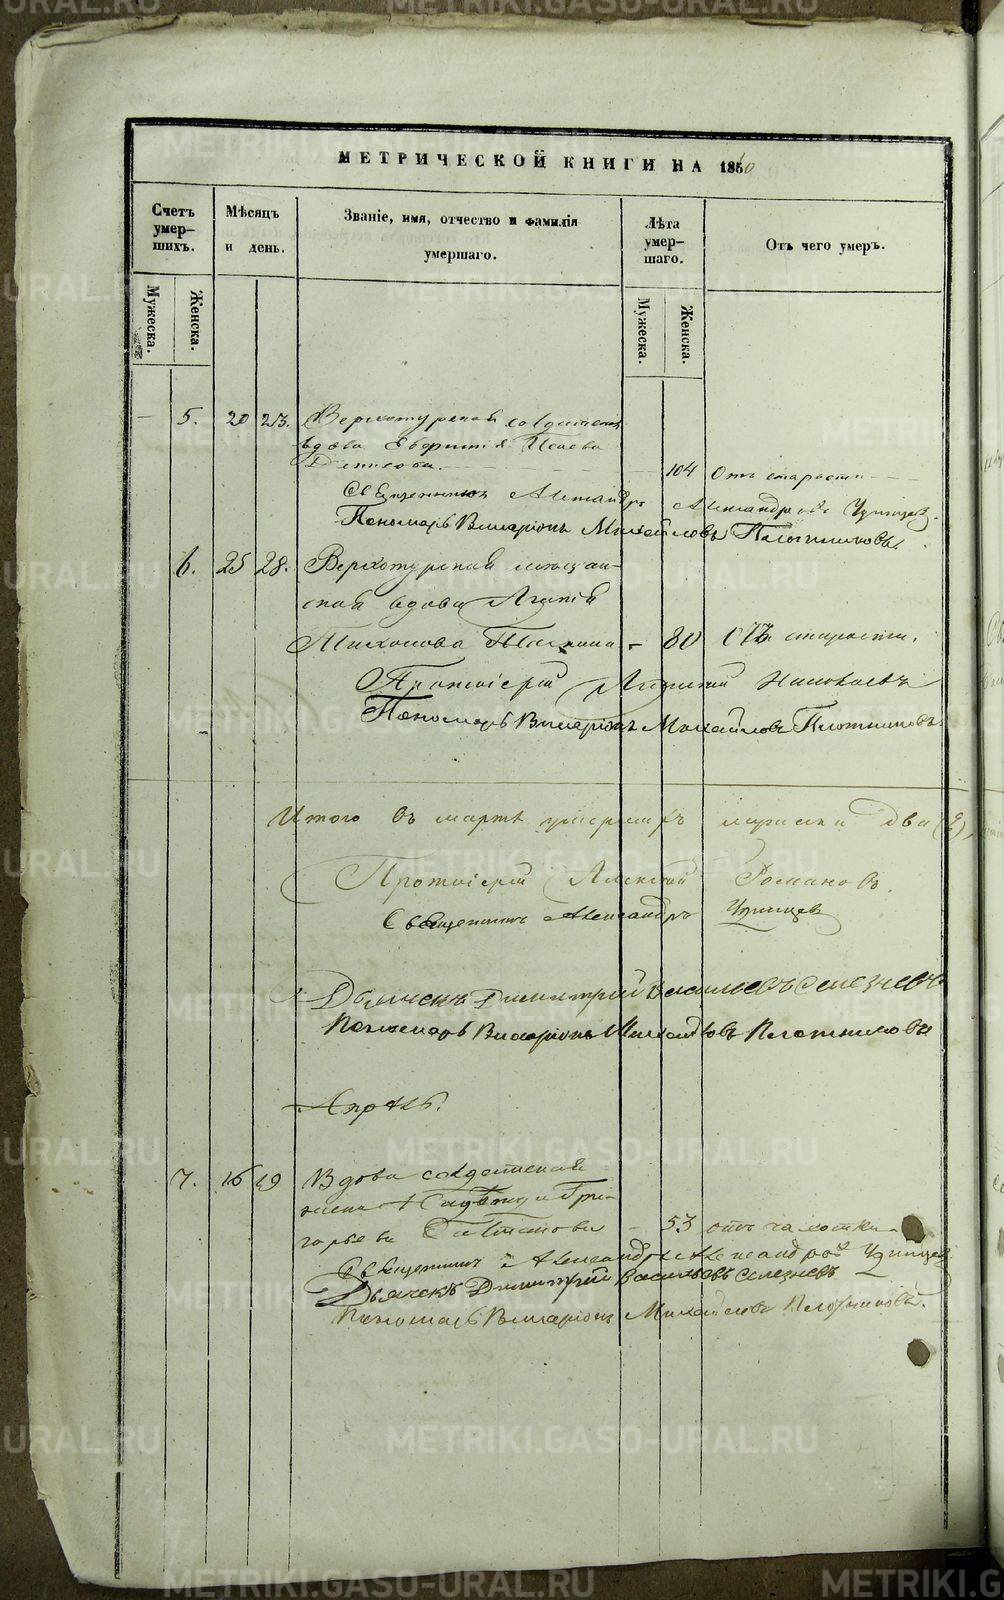 METRIKI.GASO-URAL.RU
МЕТРИЧЕСКОЙ КНИГИ НА 1860
Счетъ умер-шихъ.
Мѣсяцъ и день.
Званіе, имя, отчество и фамилія умершаго.
Лѣта умер-шаго.
Отъ чего умеръ.
Мужеска.
Женска.
Мужеска.
Женска.
5. 20 23. Верхотурская солдатская
вдова Евфимія Исаева
Денисова. 104 Отъ старости
Священникъ Александръ Александровъ
Пономарь Илларіонъ Михайловъ Плотниковъ.
6. 25 28. Верхотурская мѣщан-
ская вдова Агапія
80 Отъ старости.
Протоіерей
Пономарь Илларіонъ Михайловъ Плотниковъ
Итого въ мартѣ умершихъ мужска два (2),
Протоіерей Алексій Романовъ.
Священникъ Александръ
Дьячекъ Димитрій Васильевъ Селезневъ
Пономарь Илларіонъ Михайловъ Плотниковъ
Апрѣль.
7. 16 19 Вдова солдатская
жена Гри-
горьева 53 отъ чахотки
Священникъ Александръ Александровъ
Дьячекъ Димитрій Васильевъ Селезневъ
Пономарь Илларіонъ Михайловъ Плотниковъ.